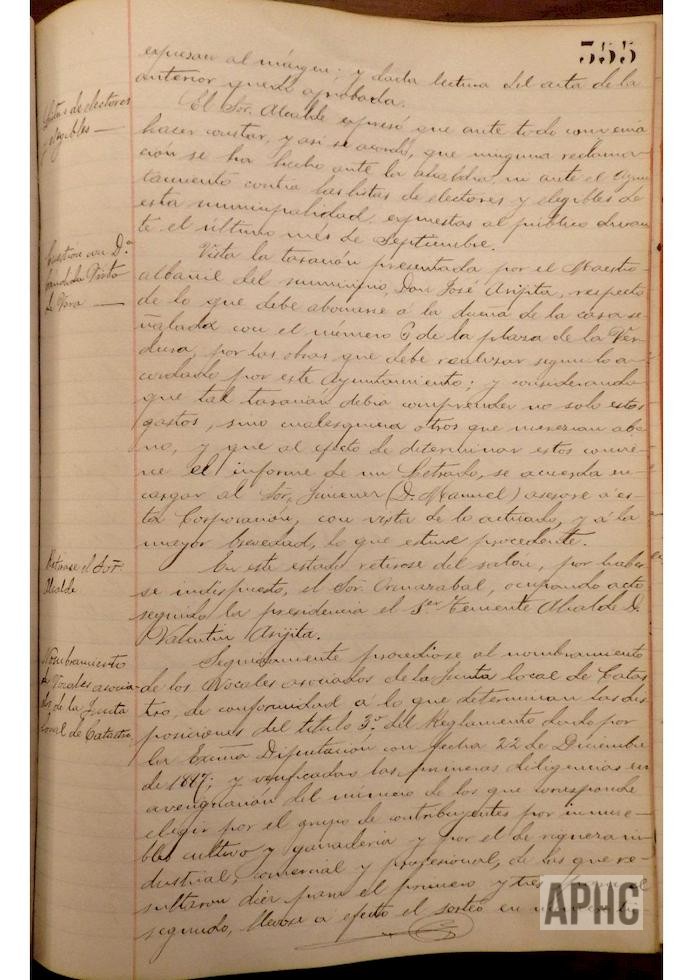 355
expresan al márgen; y dada lectura del acta de la
anterior quedó aprobada.
Listas de electores
elegibles —
El Sor. Alcalde expresó que ante todo convenia
hacer constar, y así se acordó, que ninguna reclama-
ción se ha hecho ante la Alcaldia ni ante el Ayun
tamiento contra las listas de electores y elegibles de
esta municipalidad expuestas al público duran
te el último més de Septiembre.
Cuestion con D.ª
de Vera —
Vista la tasación presentada por el Maestro
albañil del municipio, Don José Arijita, respecto
de lo que debe abonarse á la dueña de la casa se-
ñalada con el número 6 de la plaza de la Ver
dura, por las obras que debe realizar segun lo a-
cordado por este Ayuntamiento; y considerando
que tal tasación debia comprender no solo estos
gastos, sino cualesquiera otros que merezcan abo
no, y que al efecto de determinar estos convie-
ne el informe de un Letrado, se acuerda en-
cargar al Sor. Jimenez (D. Manuel) asesore á es-
ta Corporación, con vista de lo actuado, y á la
mayor brevedad, lo que estime procedente.
Retirase el Sor.
Alcalde
En este estado retirose del salón, por haber
se indispuesto, el Sor. Ormazabal, ocupando acto
seguido la presidencia el 1er Teniente Alcalde D.
Valentin Arijita.
Nombramiento
de Vocales asocia-
dos de la Junta
local de Catastro
Seguidamente procediose al nombramiento
de los Vocales asociados de la Junta local de Catas
tro, de conformidad á lo que determinan las dis-
posiciones del título 3º. del Reglamento dado por
la Excma Diputación con fecha 22 de Diciembre
de 1887; y verificadas las primeras diligencias en
averiguación del número de los que corresponde
elegir por el grupo de contribuyentes por inmue-
bles cultivo y ganaderia y por el de riqueza in
dustrial, comercial y profesional, de las que re-
sultaron diez para el primero y tres para el
segundo, llevose a efecto el sorteo en
APHC